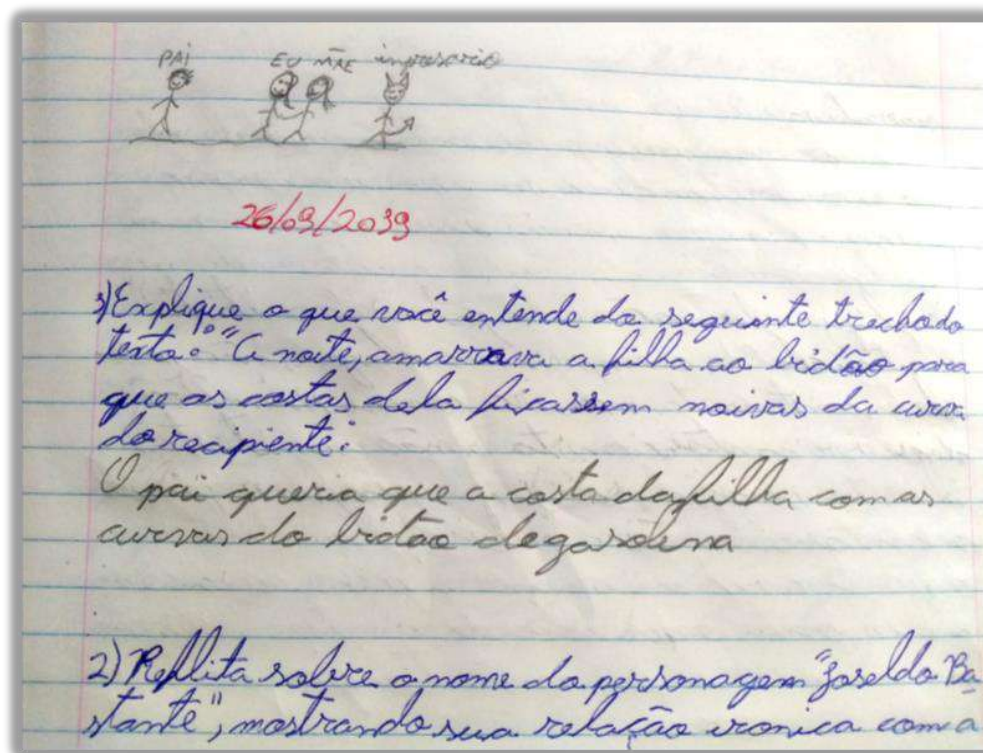 PAI EU MÃE impresario
26/09/2039
1) Explique o que você entende do seguinte trecho do
texto: "A noite, amarrava a filha ao bidão para
que as costas dela ficassem noivas da curva
do recipiente:
O pai queria que a costa da filha com as
curvas do bidão de gasolina
2) Reflita sobre o nome do personagem "Joseldo Ba
stante", mostrando sua relação ironica com a